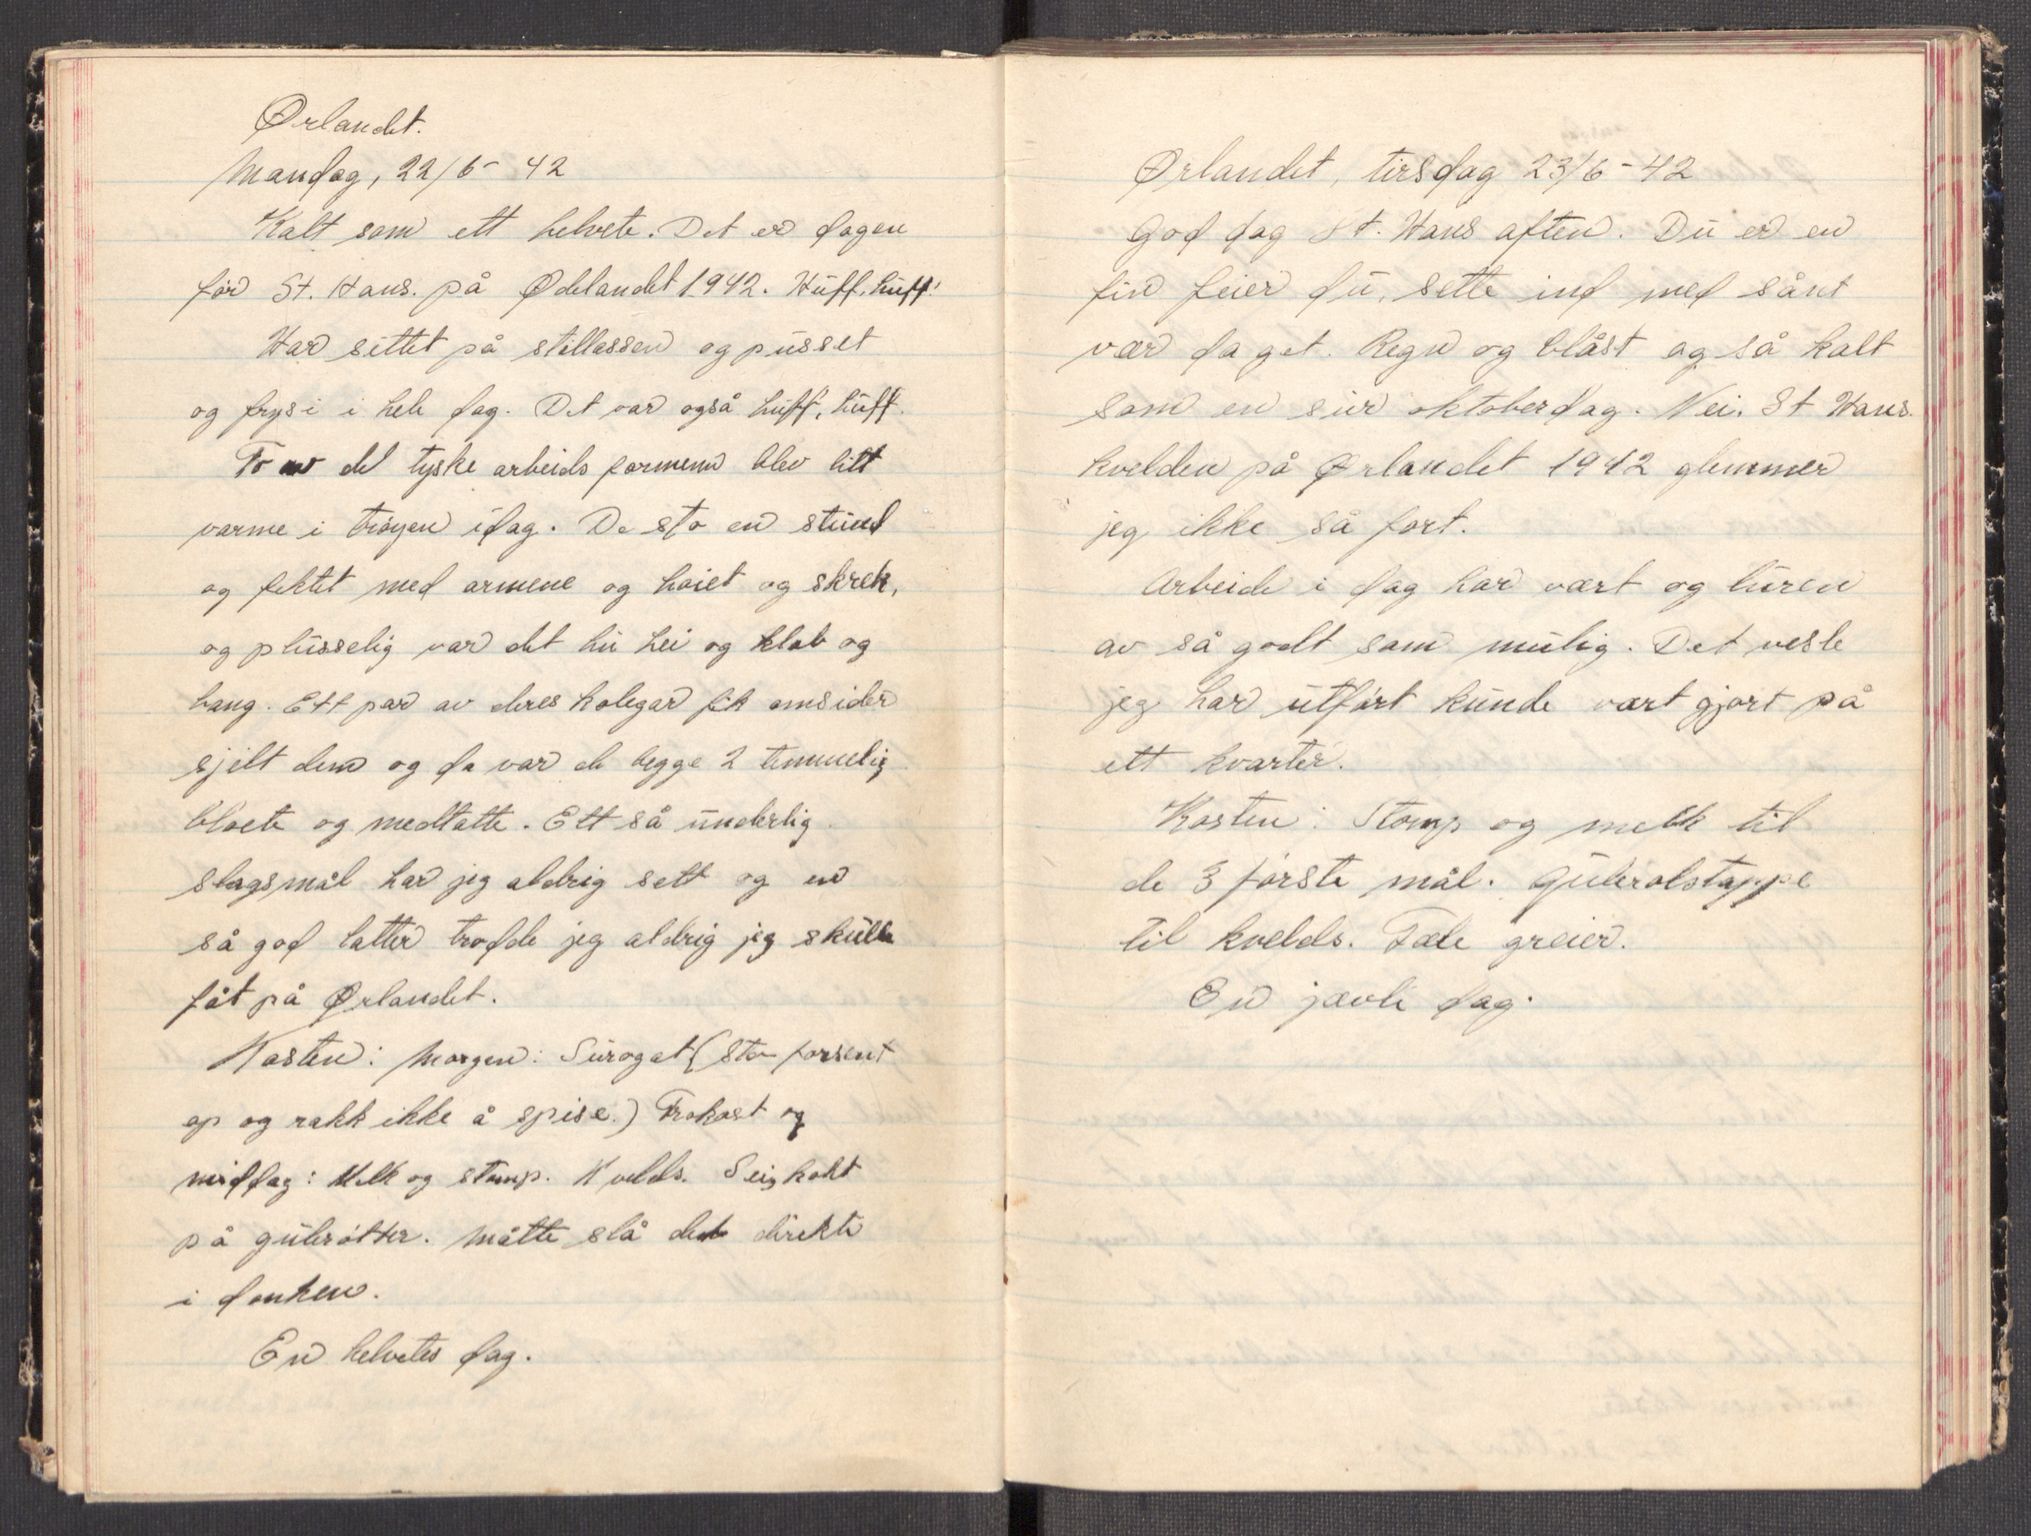 Ørlandet.
Mandag, 22/6 - 42
Kalt som ett helvete. Det er dagen
før St. Hans. på Ødelandet 1942. Huff, huff!
Har sittet på stillassen og pusset
og frysi i hele dag. Det var også huff, huff.
To av det tyske arbeids formenn blev litt
varme i trøyen idag. De sto en stund
og fektet med armene og hoiet og skrek,
og plusselig var det hu hei og klab og
bang. Ett par av deres kolegar fik omsider
sjilt dem og da var de begge 2 temmelig
bloete og medtatte. Ett så underlig
slagsmål har jeg aldrig sett og en
så god latter trodde jeg aldrig jeg skulle
fåt på Ørlandet.
Kosten: Morgen: Surogat (sto forsent
op og rakk ikke å spise.) Frokost og
middag: Melk og stomp. Kvelds. Sei, kokt
på gulerøtter. Måtte slå det direkte
i donken.
En helvetes dag.
Ørlandet, tirsdag 23/6 - 42
God dag St. Hans aften. Du er en
fin feier du, sette ind med sånt
vær da get. Regn og blåst og så kalt
som en sur oktoberdag. Nei. St Hans.
kvelden på Ørlandet 1942 glemmer
jeg ikke så fort.
Arbeide i dag har vært og luren
av så godt som mulig. Det vesle
jeg har utført kunde vært gjort på
ett kvarter.
Kosten: Stomp og melk til
de 3 første mål. Gulerotstappe
til kvelds. Fæle greier.
En jævli dag.